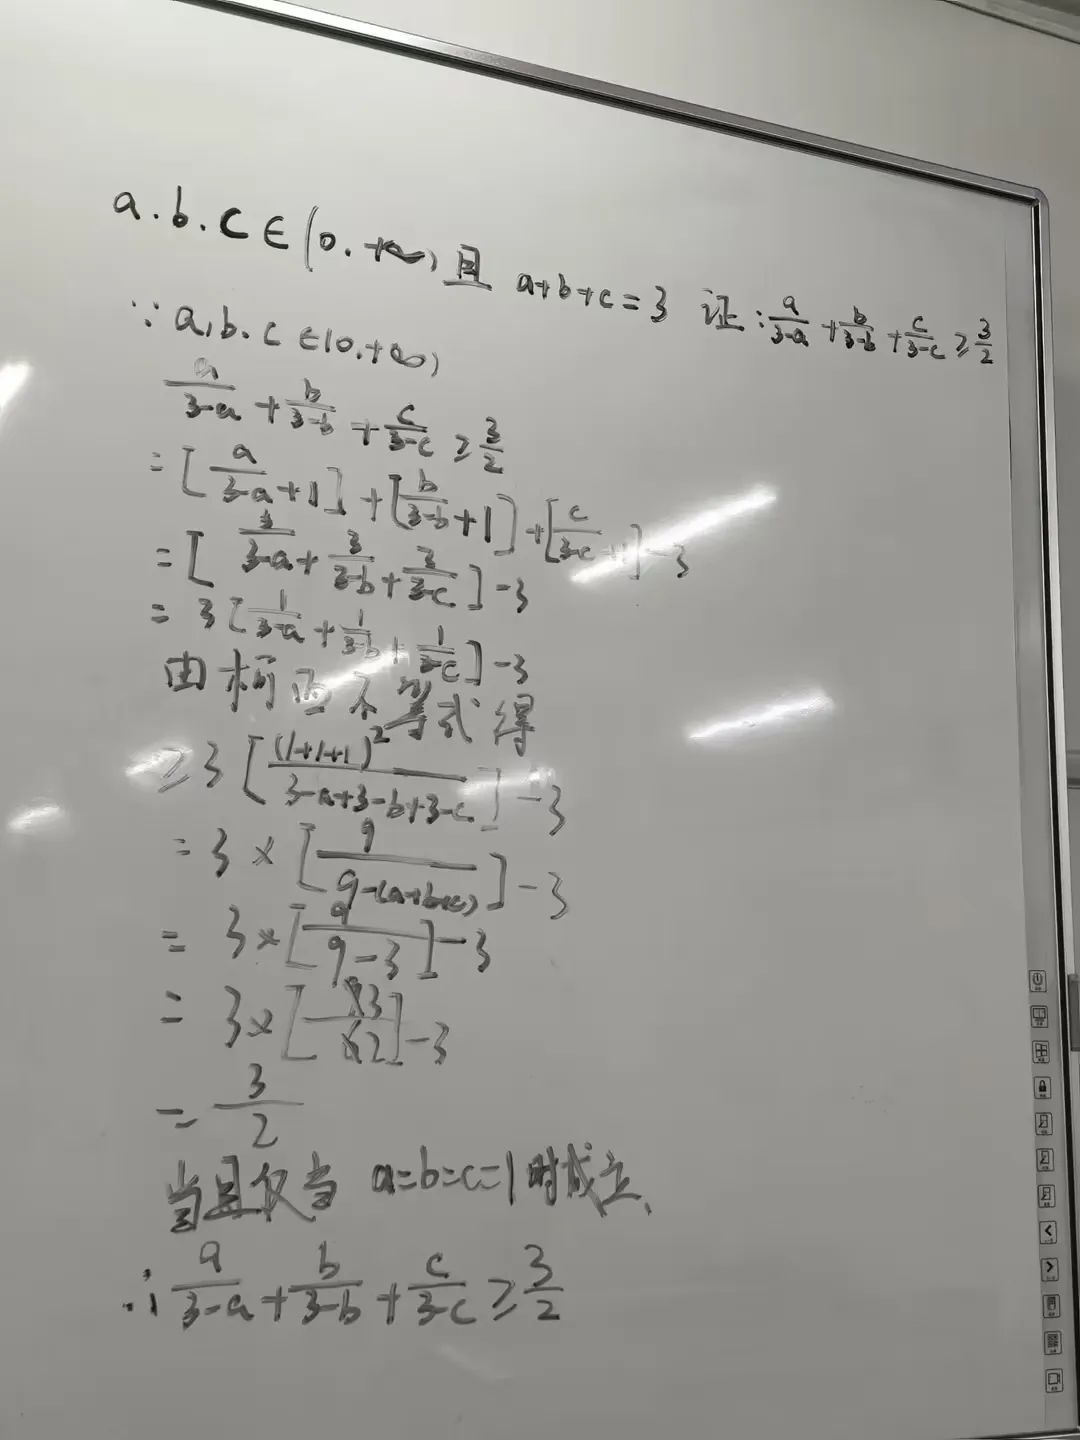 a.b.c∈(0.+∞)且 a+b+c=3 证:a/(3-a)+b/(3-b)+c/(3-c)≥3/2
∵a,b.c∈(0.+∞)
a/(3-a)+b/(3-b)+c/(3-c)≥3/2
=[a/(3-a)+1]+[b/(3-b)+1]+[c/(3-c)+1]-3
=[3/(3-a)+3/(3-b)+3/(3-c)]-3
=3[1/(3-a)+1/(3-b)+1/(3-c)]-3
由柯西不等式得
≥3[(1+1+1)²/(3-a+3-b+3-c)]-3
=3×[9/(9-(a+b+c))]-3
=3×[9/(9-3)]-3
=3×[3/2]-3
=3/2
当且仅当 a=b=c=1时成立.
∴a/(3-a)+b/(3-b)+c/(3-c)≥3/2